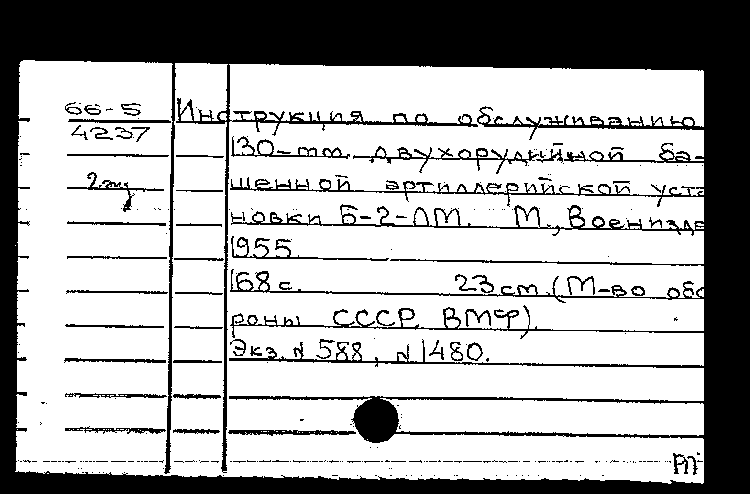 66-5
4237
2 экз
Инструкция по обслуживанию
130-mm. двухорудийной ба-
шенной артиллерийской уста
новки Б-2-ЛМ. М., Воениздa
1955.
168 с. 23 cm. (М-во обо
роны СССР. ВМФ).
Экз. N 588, N 1480.